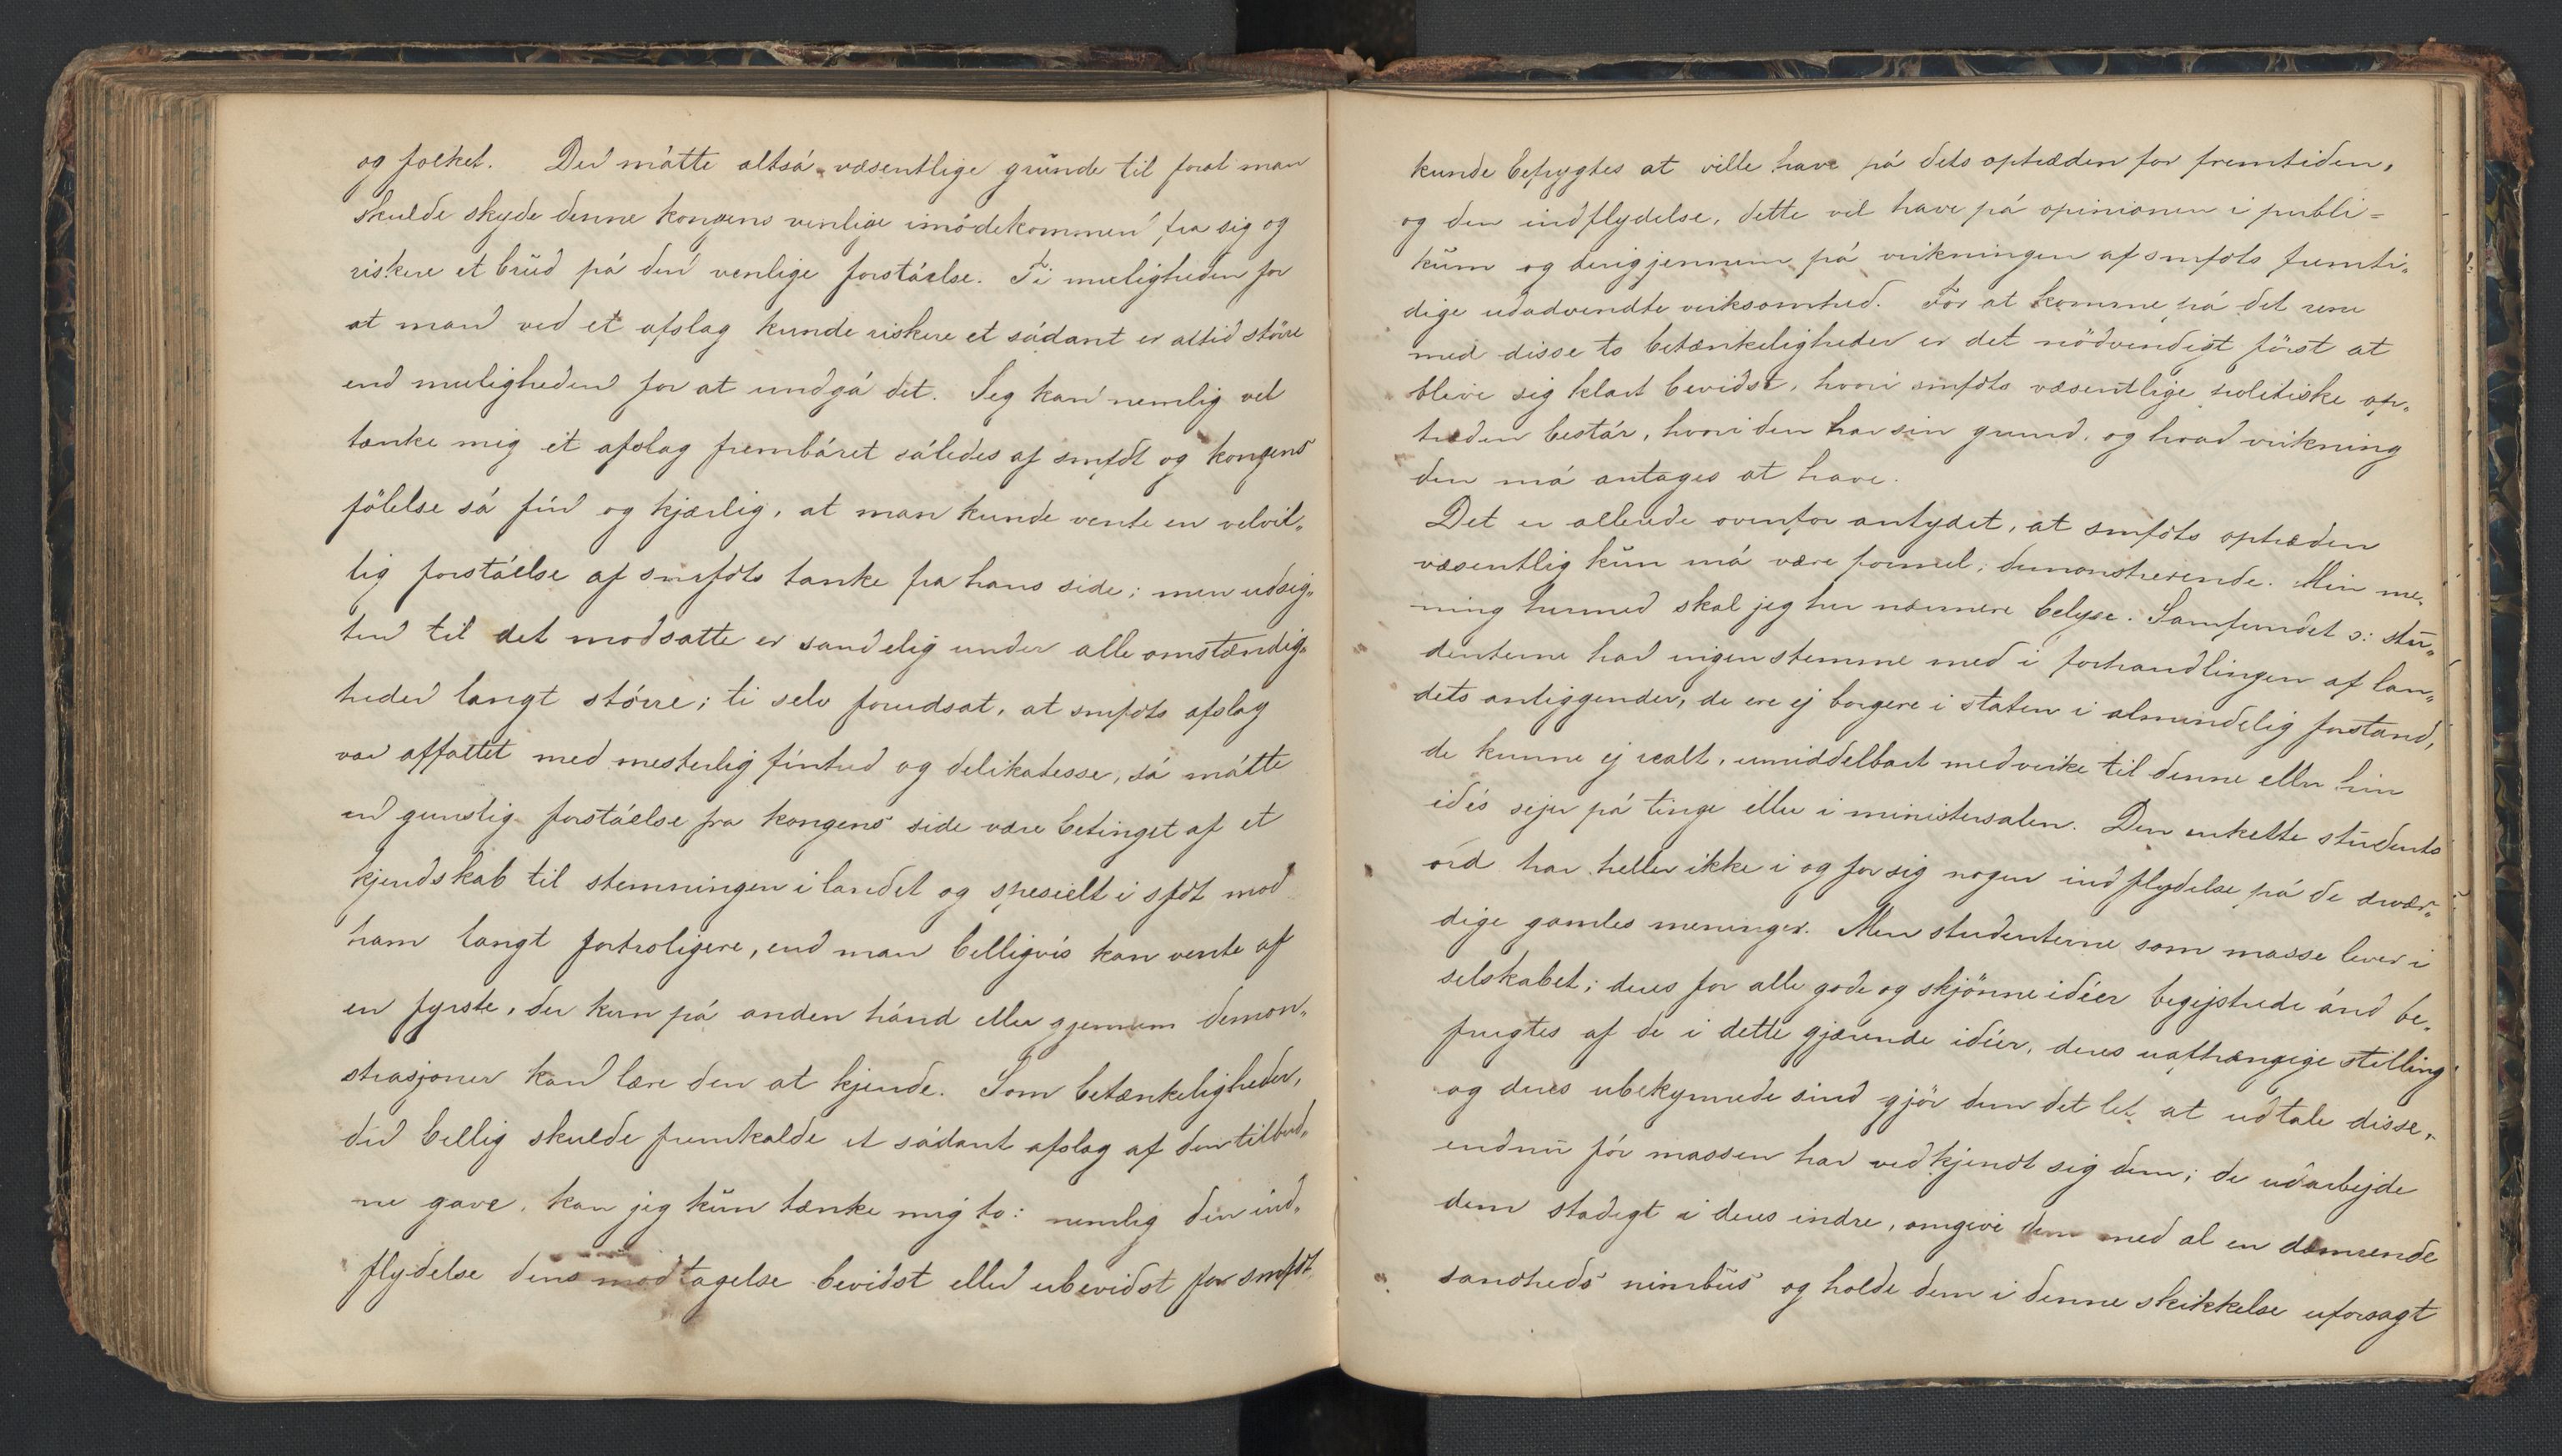 og folket. Der måtte altså væsentlige grunde til forat man
skulde skyde denne kongens venlige imødekommen fra sig og
riskere et brud på den venlige forståelse. Ti muligheden for
at man ved et afslag kunde riskere et sådant er altid större
end muligheden for at undgå det. Jeg kan nemlig vel
tænke mig et afslag frembåret således af smfdt og kongens
følelse så fin og kjærlig, at man kunde vente en velvil-
lig forståelse af smfdts tanke fra hans side; men udsig-
ten til det modsatte er sandelig under alle omstændig-
heder langt större; ti selv forudsat, at smfdts afslag
var affattet med mesterlig finhed og delikatesse, så måtte
en gunstig forståelse fra kongens side være betinget af et
kjendskab til stemningen i landet og spesielt i sfdt mod
ham langt fortroligere, end man billigvis kan vente af
en fyrste, der kun på anden hånd eller gjennem demon-
strasjoner kan lære den at kjende. Som betænkeligheder,
der billig skulde fremkalde et sådant afslag af den tilbud-
ne gave, kan jeg kun tænke mig to: nemlig den ind-
flydelse dens modtagelse bevidst eller ubevidst for smfdt
kunde befrygtes at ville have på dets optræden for fremtiden,
og den indflydelse, dette vil have på opinionen i publi-
kum og derigjennem på virkningen af smfdts fremti-
dige udadvendte virksomhed. For at komme på det rene
med disse to betænkeligheder er det nödvendigt först at
blive sig klart bevidst, hvori smfdts væsentlige politiske op-
træden består, hvori den har sin grund, og hvad virkning
den må antages at have.
Det er allerede ovenfor antydet, at smfdts optræden
væsentlig kun må være formel; demonstrerende. Min me-
ning hermed skal jeg her nærmere belyse. Samfundet ɔ: stu-
denterne har ingen stemme med i forhandlingen af lan-
dets anliggender, de ere ej borgere i staten i almindelig forstand,
de kunne ej realt, umiddelbart medvirke til denne eller hin
idés sejer på tinge eller i ministersalen. Den enkelte students
ord har heller ikke i og for sig nogen indflydelse på de ærvær-
dige gamles meninger. Men studenterne som masse lever i
selskabet; deres for alle gode og skjönne idéer begejstrede ånd be-
frugtes af de i dette gjærende idéer, deres uafhængige stilling
og deres ubekymrede sind gjör dem det let at udtale disse,
endnu för massen har vedkjendt sig dem; de udarbejde
dem stadigt i deres indre, omgive dem med al en dæmrende
sandheds nimbus og holde dem i denne skikkelse uforsagt